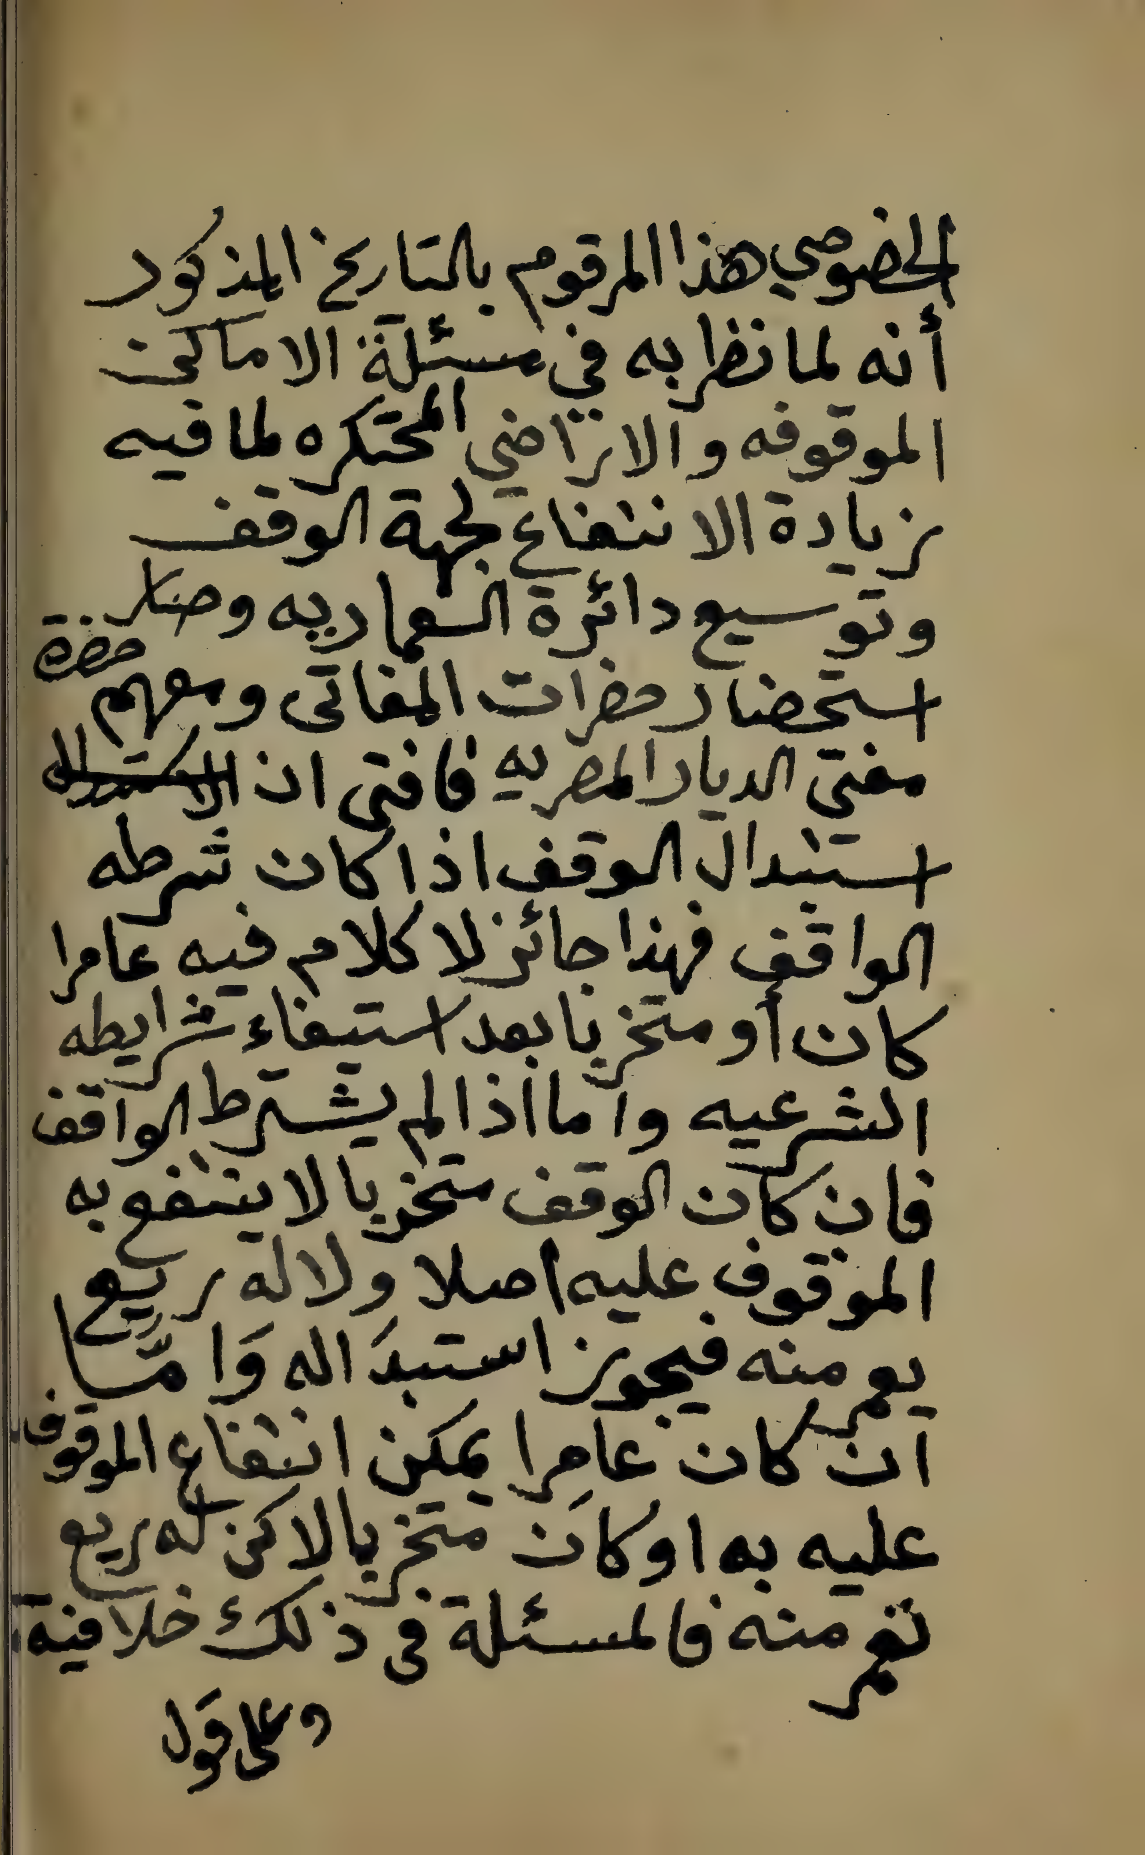 الخصوصي هذا المرقوم بالتاريخ المذكور
أنه لما نظر به في مسئلة الاماكن
الموقوفه والاراضي المحتكره لما فيه
زيادة الانتفاع لجهة الوقف
وتوسيع دائرة العماريه وصار
استحضار حضرات المفاتى ومعهم حضرة
مفتى الديار المصريه فافتى ان الاستبدال
استبدال الوقف اذا كان شرطه
الواقف فهذا جائز لا كلام فيه عامرا
كان أو متخربا بعد استيفاء شرايطه
الشرعيه واما اذا لم يشترط الواقف
فان كان الوقف متخربا لا ينتفع به
الموقوف عليه اصلا ولا له ريع
يعمر منه فيجوز استبداله وامّا
ان كان عامرا يمكن انتفاع الموقوف
عليه به او كان متخربا لاكن له ريع
تعمر منه فالمسئلة فى ذلك خلافية
وعلى قول